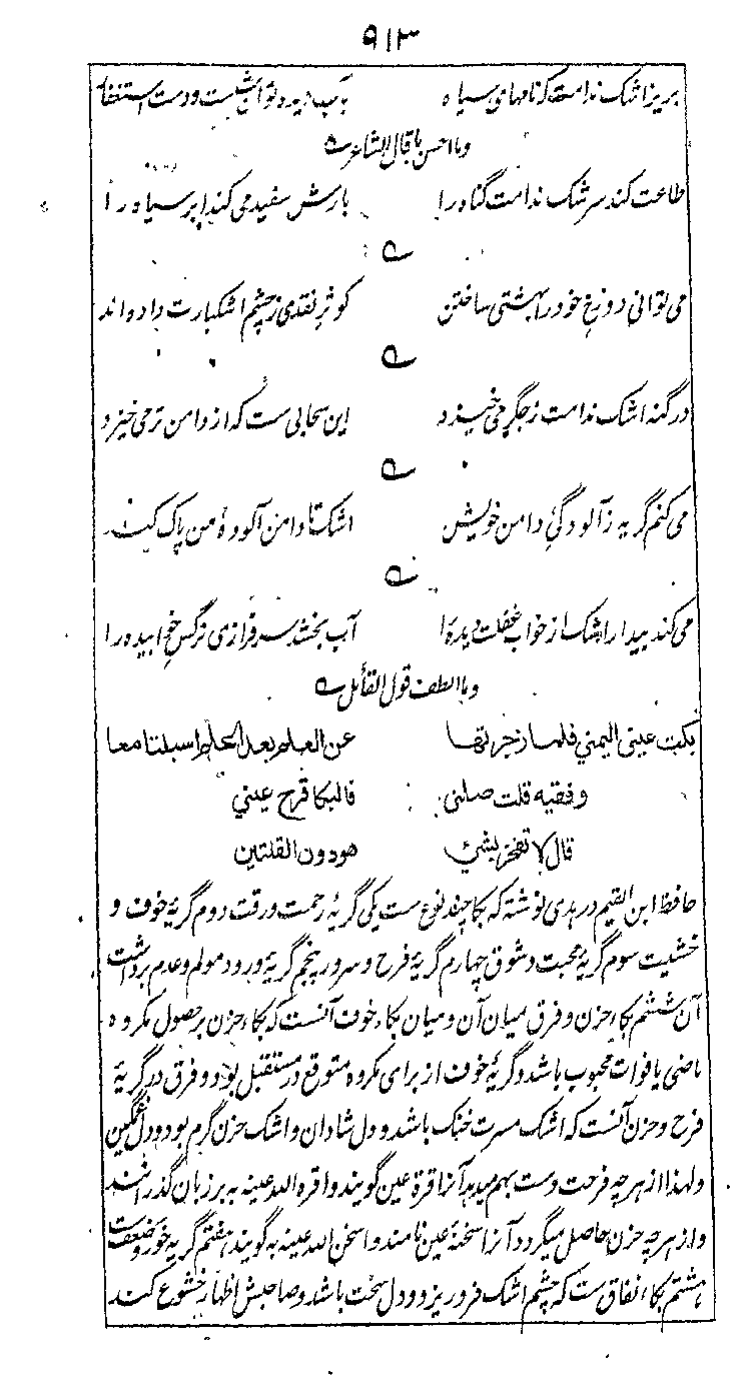 ۹۱۳
بریز اشک ندامت که نامهای سیاه بآب دیده توان شست و دست استغفا
وما احسن ما قال الشاعر ے
طاعت کند سرشک ندامت گناه را بارش سفید می کند ابر سیاه را
ے
می توانی دوزخ خود را بهشتی ساختن کوثر نقدی ز چشم اشکبارت داده اند
ے
در گنه اشک ندامت ز جگر می خیزد این سحابی ست که از دامن تر می خیزد
ے
می کنم گریه ز آلودگیٔ دامن خویش اشک تا دامن آلودهٔ من پاک کند
ے
می کند بیدار اشک از خواب غفلت دیده را آب بخشد سرفرازی نرگس خوابیده را
وما الطف قول القائل ے
بکت عینی الیمنی فلما زجرتها عن الجهل بعد الحلم اسبلتا معا
وفقیه قلت صلنی فالبکا قرح عینی
قال لا تفخر بشیٔ هو دون القلتین
حافظ ابن القیم در هدی نوشته که بکا چند نوع ست یکی گریهٔ رحمت ورقت دوم گریهٔ خوف و
خشیت سوم گریهٔ محبت وشوق چهارم گریهٔ فرح وسرور پنجم گریهٔ ورود مولم وعدم برداشت
آن ششم بکاء حزن وفرق میان آن ومیان بکاء خوف آنست که بکاء حزن بر حصول مکروه
ماضی یا فوات محبوب باشد وگریهٔ خوف از برای مکروه متوقع در مستقبل بود وفرق در گریهٔ
فرح وحزن آنست که اشک مسرت خنک باشد ودل شادان واشک حزن گرم بود ودل غمگین
ولهذا از هرچه فرحت دست بهم میدهد آنرا قرة عین گویند واقره الله عینه به بر زبان گذرانند
واز هرچه حزن حاصل میگردد آنرا سخنهٔ عین نامند واسخن الله عینه به گویند هفتم گریهٔ خور وضعف
هشتم بکاء نفاق ست که چشم اشک فرو ریزد ودل سخت باشد وصاحبش اظهار خشوع کند